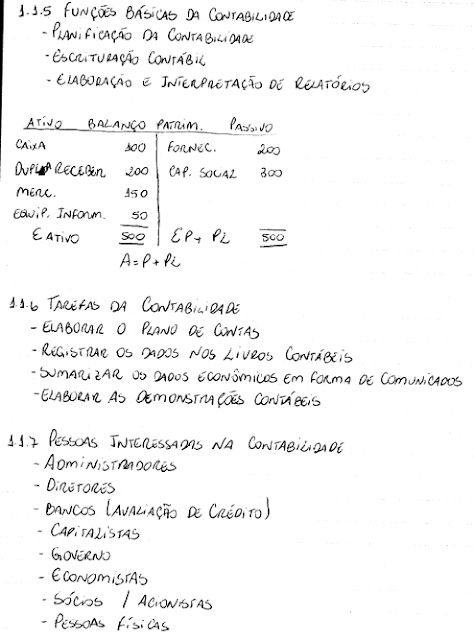 1.1.5 FUNÇÕES BÁSICAS DA CONTABILIDADE
- PLANIFICAÇÃO DA CONTABILIDADE
- ESCRITURAÇÃO CONTÁBIL
- ELABORAÇÃO E INTERPRETAÇÃO DE RELATÓRIOS
ATIVO BALANÇO PATRIM. PASSIVO
CAIXA 100 FORNEC. 200
DUPL. RECEBER 200 CAP. SOCIAL 300
MERC. 150
EQUIP. INFORM. 50
Σ ATIVO 500 Σ P + PL 500
A = P + PL
1.1.6 TAREFAS DA CONTABILIDADE
- ELABORAR O PLANO DE CONTAS
- REGISTRAR OS DADOS NOS LIVROS CONTÁBEIS
- SUMARIZAR OS DADOS ECONÔMICOS EM FORMA DE COMUNICADOS
- ELABORAR AS DEMONSTRAÇÕES CONTÁBEIS
1.1.7 PESSOAS INTERESSADAS NA CONTABILIDADE
- ADMINISTRADORES
- DIRETORES
- BANCOS (AVALIAÇÃO DE CRÉDITO)
- CAPITALISTAS
- GOVERNO
- ECONOMISTAS
- SÓCIOS / ACIONISTAS
- PESSOAS FÍSICAS